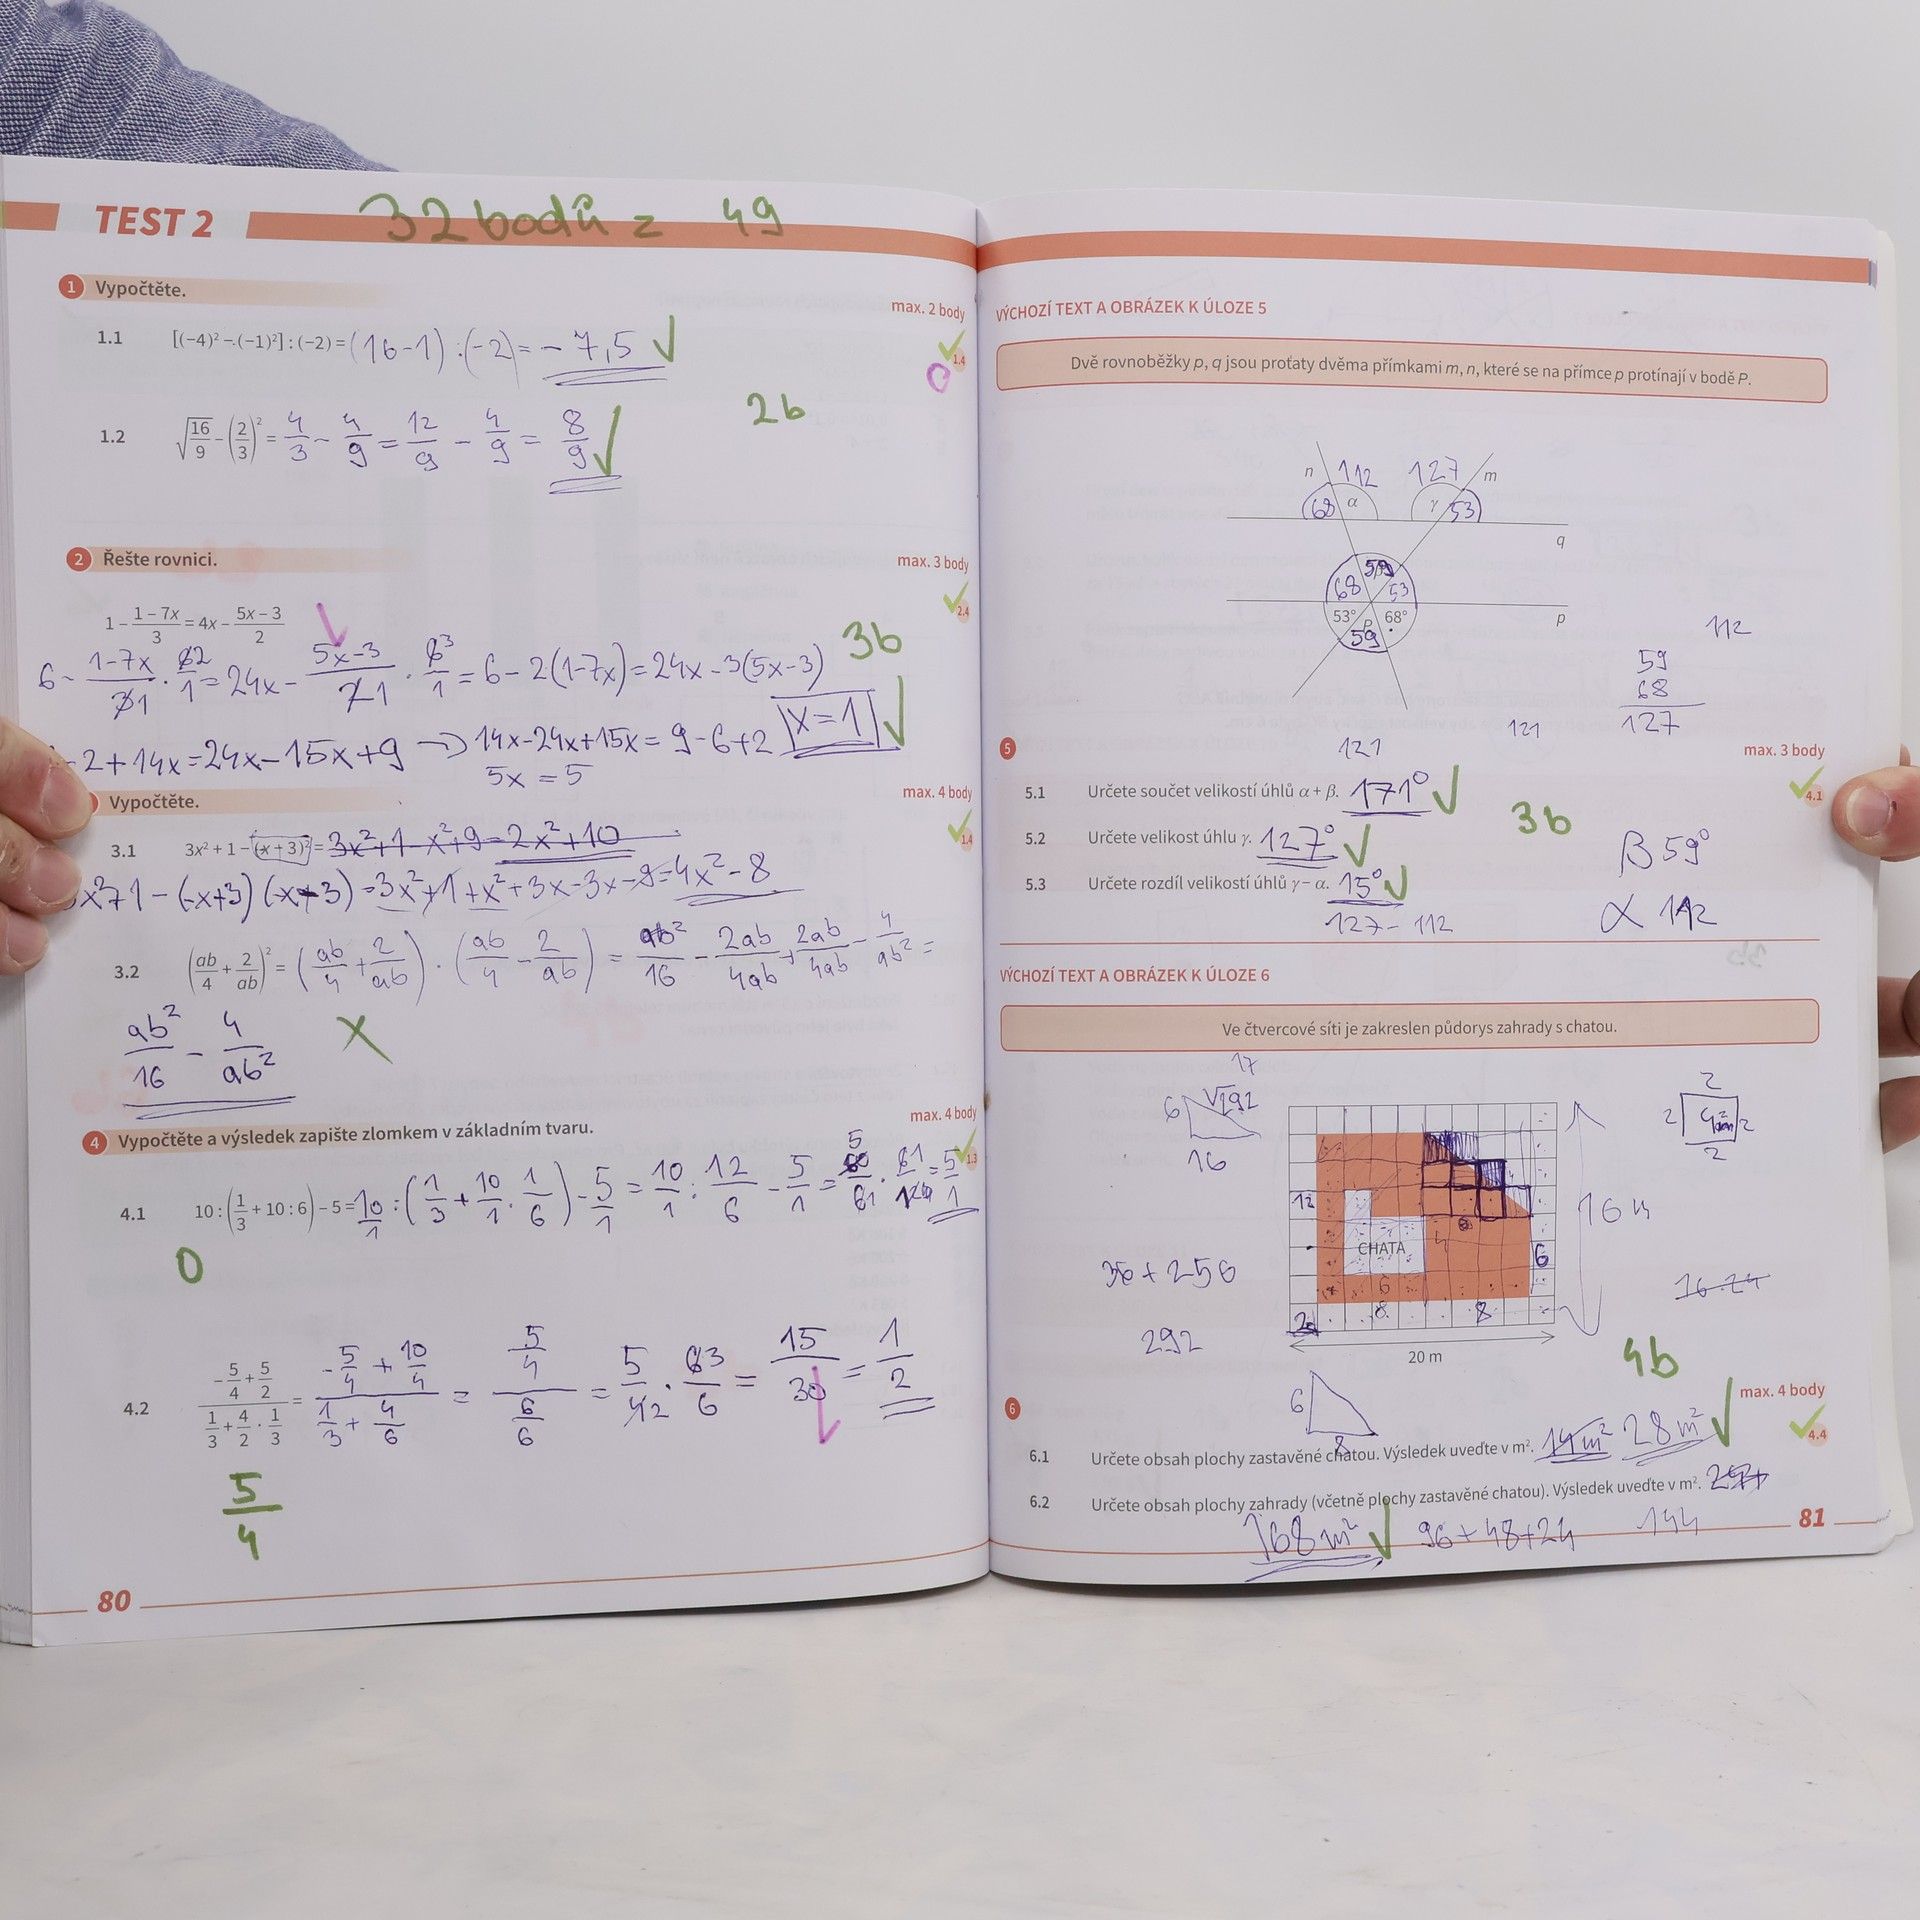 TEST 2
32 bodů z 49
1 Vypočtěte.
max. 2 body
1.1 [(−4)² − (−1)²] : (−2) = (16-1) : (-2) = -7,5 ✓
1.4
0
2b
1.2 √16/9 − (2/3)² = 4/3 - 4/9 = 12/9 - 4/9 = 8/9 ✓
2 Řešte rovnici.
max. 3 body
1 − (1 − 7x)/3 = 4x − (5x − 3)/2
2.4
3b
6 - (1-7x)/31 · 62/1 = 24x - (5x-3)/21 · 63/1 = 6 - 2(1-7x) = 24x - 3(5x-3)
-2+14x = 24x-15x+9 → 14x-24x+15x = 9-6+2 x=1 ✓
5x = 5
Vypočtěte.
max. 4 body
3.1 3x² + 1 − (x + 3)² = 3x²+1-x²+9 = 2x²+10
1.4
x²+1 - (-x+3)(x-3) = 3x²+1+x²+3x-3x-9 = 4x²-8
3.2 (ab/4 + 2/ab)² = (ab/4 + 2/ab) · (ab/4 - 2/ab) = ab²/16 - 2ab/4ab + 2ab/4ab - 4/ab² =
ab²/16 - 4/ab²
X
max. 4 body
4 Vypočtěte a výsledek zapište zlomkem v základním tvaru.
1.3
4.1 10 : (1/3 + 10 : 6) − 5 = 10/1 : (1/3 + 10/1 · 1/6) - 5/1 = 10/1 : 12/6 - 5/1 = = 5/1
0
4.2 (−5/4 + 5/2)/(1/3 + 4/2 · 1/3) = (-5/4 + 10/4)/(1/3 + 4/6) = (5/4)/(6/6) = 5/42 · 63/6 = 15/30 = 1/2
5/4
80
VÝCHOZÍ TEXT A OBRÁZEK K ÚLOZE 5
Dvě rovnoběžky p, q jsou proťaty dvěma přímkami m, n, které se na přímce p protínají v bodě P.
n 112 127 m
68 α γ 53
q
68 59 53
53° P 68° p
59
112
59
68
127
121
121
5
max. 3 body
5.1 Určete součet velikostí úhlů α + β. 171° ✓
4.1
3b
5.2 Určete velikost úhlu γ. 127° ✓
β 59°
5.3 Určete rozdíl velikostí úhlů γ − α. 15° ✓
127 - 112
α 112
VÝCHOZÍ TEXT A OBRÁZEK K ÚLOZE 6
Ve čtvercové síti je zakreslen půdorys zahrady s chatou.
17
6 √292
16
2
2 2
2
12
16 m
CHATA
4
6
36 + 256
6
8 8
16·24
292
20 m
4b
6
8
6
max. 4 body
6.1 Určete obsah plochy zastavěné chatou. Výsledek uveďte v m². 14m² 28m² ✓
4.4
6.2 Určete obsah plochy zahrady (včetně plochy zastavěné chatou). Výsledek uveďte v m².
168m² ✓ 96+48+24 144
81